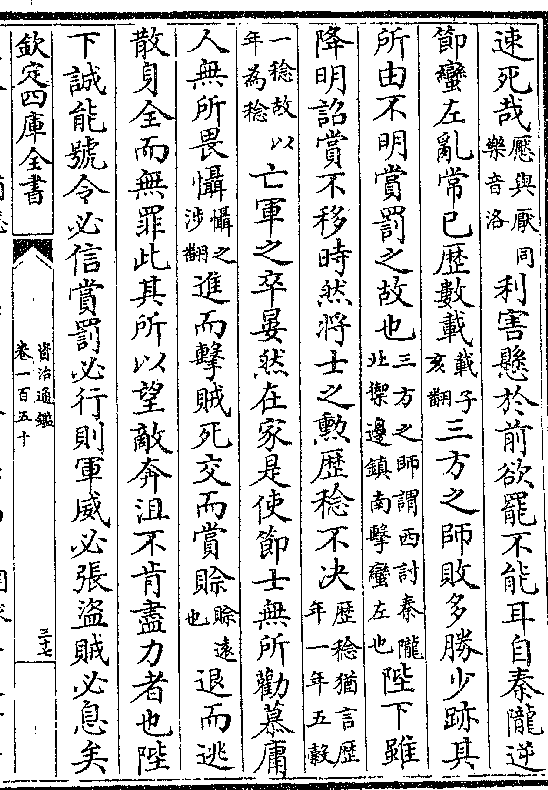 速死哉厭與厭同樂音洛利害懸於前欲罷不能耳自秦隴逆
節蠻左亂常已歷數載載子亥翻三方之師敗多勝少跡其
所由不明賞罰之故也三方之師謂西討秦隴北禦邊鎮南擊蠻左也陛下雖
降明詔賞不移時然將士之勲歴稔不决歴稔猶言歴年一年五穀
一稔故年為稔以亡軍之卒晏然在家是使節士無所勸慕庸
人無所畏懾懾之涉翻進而擊賊死交而賞賖賖遠也退而逃
散身全而無罪此其所以望敵奔沮不肯盡力者也陛
下誠能號令必信賞罰必行則軍威必張盜賊必息矣
欽定四庫全書
資治通鑑
卷一百五十